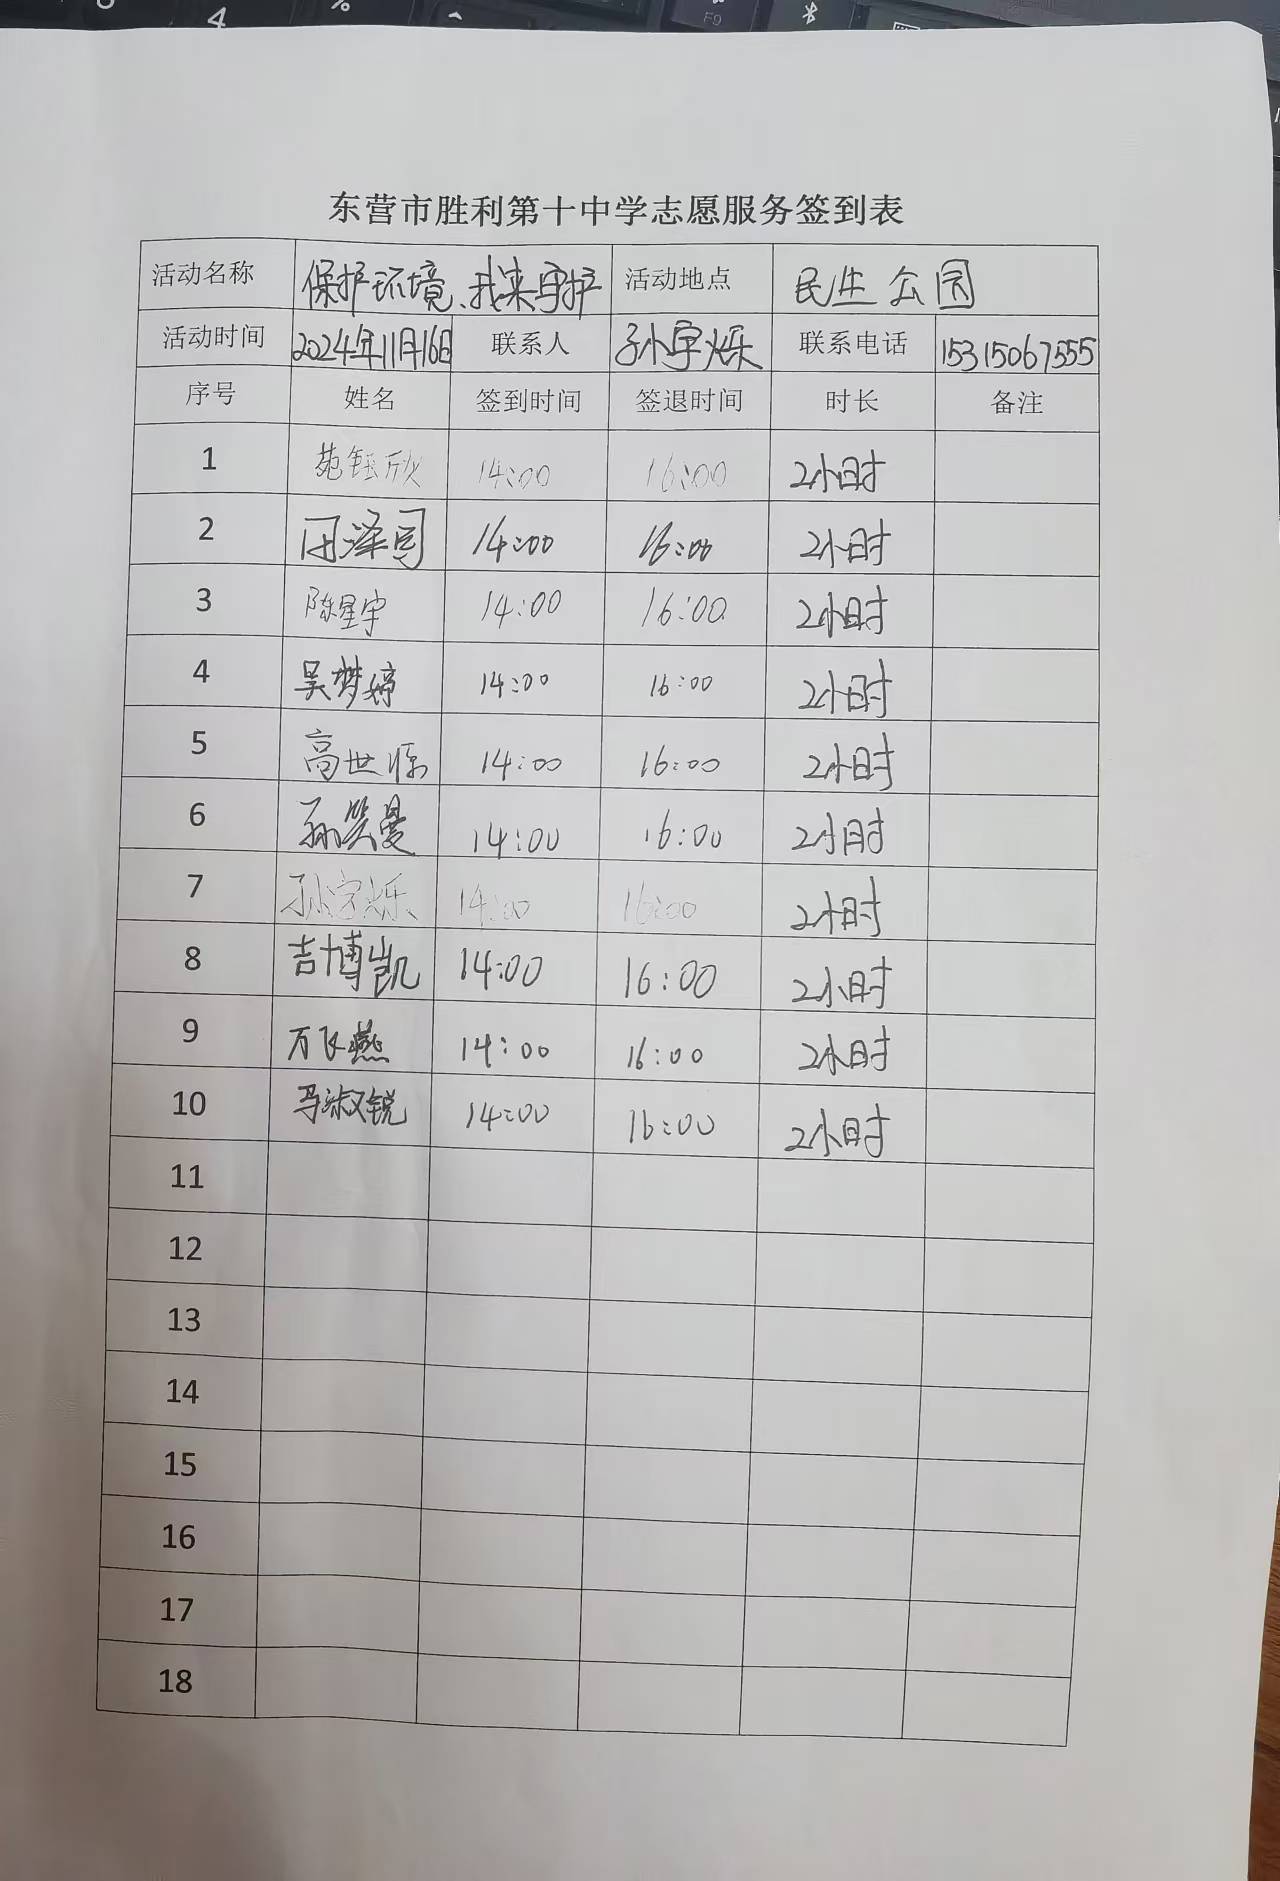 东营市胜利第十中学志愿服务签到表
活动名称 保护环境、我来守护 活动地点 民生公园
活动时间 2024年11月16日 联系人 孙宇烁 联系电话 15315067555
序号 姓名 签到时间 签退时间 时长 备注
1 苑钰欣 14:00 16:00 2小时
2 14:00 16:00 2小时
3 陈星宇 14:00 16:00 2小时
4 吴梦婷 14:00 16:00 2小时
5 高世 14:00 16:00 2小时
6 孙笑曼 14:00 16:00 2小时
7 孙宇烁 14:00 16:00 2小时
8 吉博凯 14:00 16:00 2小时
9 万飞燕 14:00 16:00 2小时
10 马淑锐 14:00 16:00 2小时
11
12
13
14
15
16
17
18